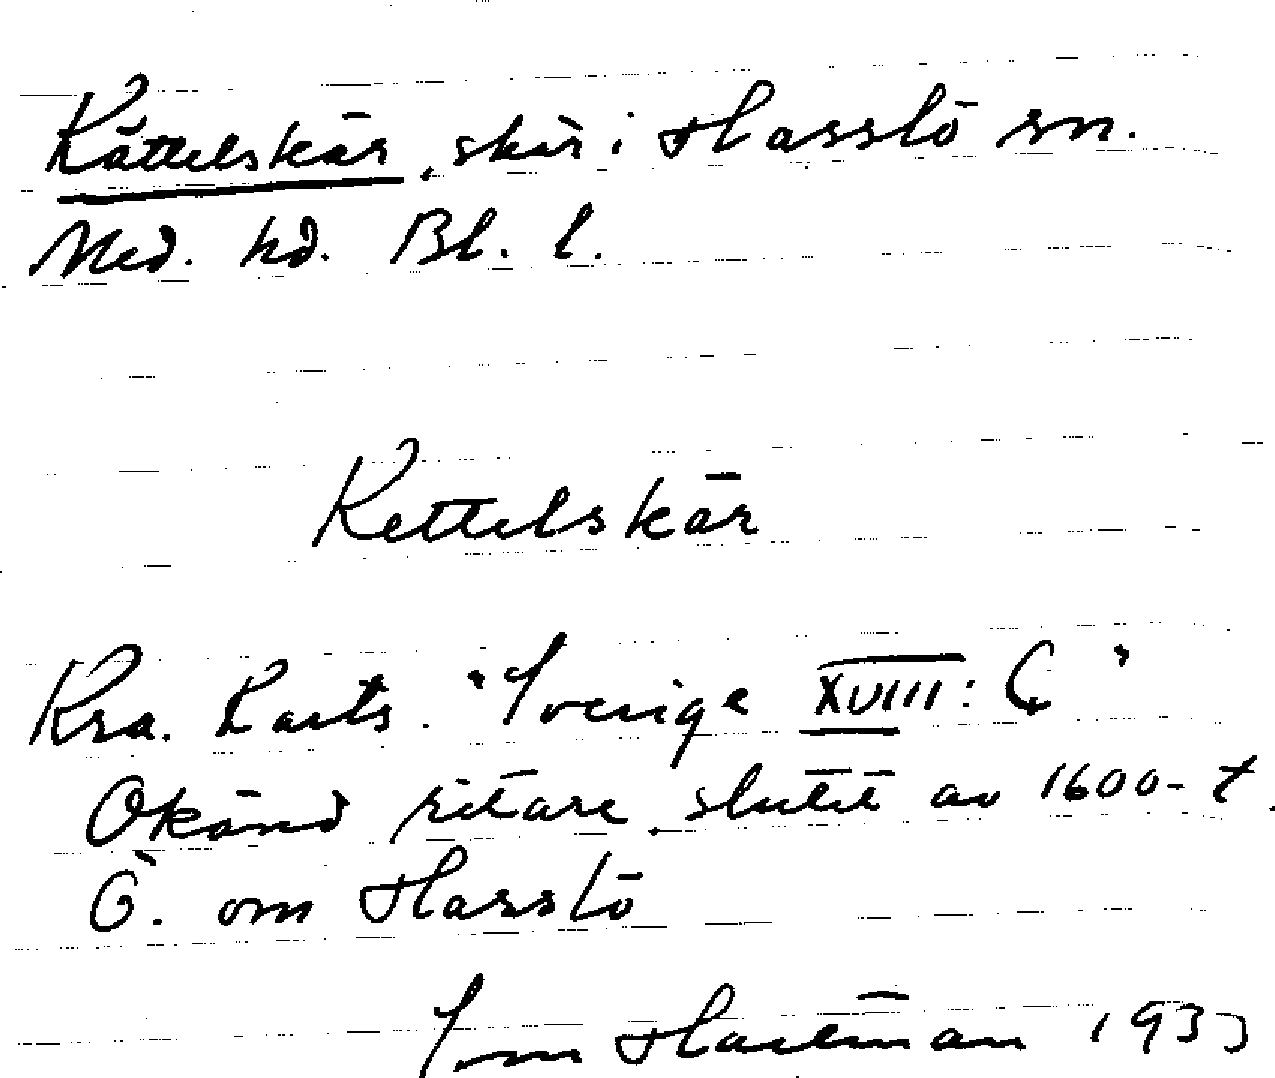 Kättelskär, skär i Hasslö sn.
Med. hd. Bl. l.
Kettelskär
Kra. Kart. "Sverige XVIII: C"
Okänd ritare, slutet av 1600-t.
Ö. om Hasslö
Hartman 1933